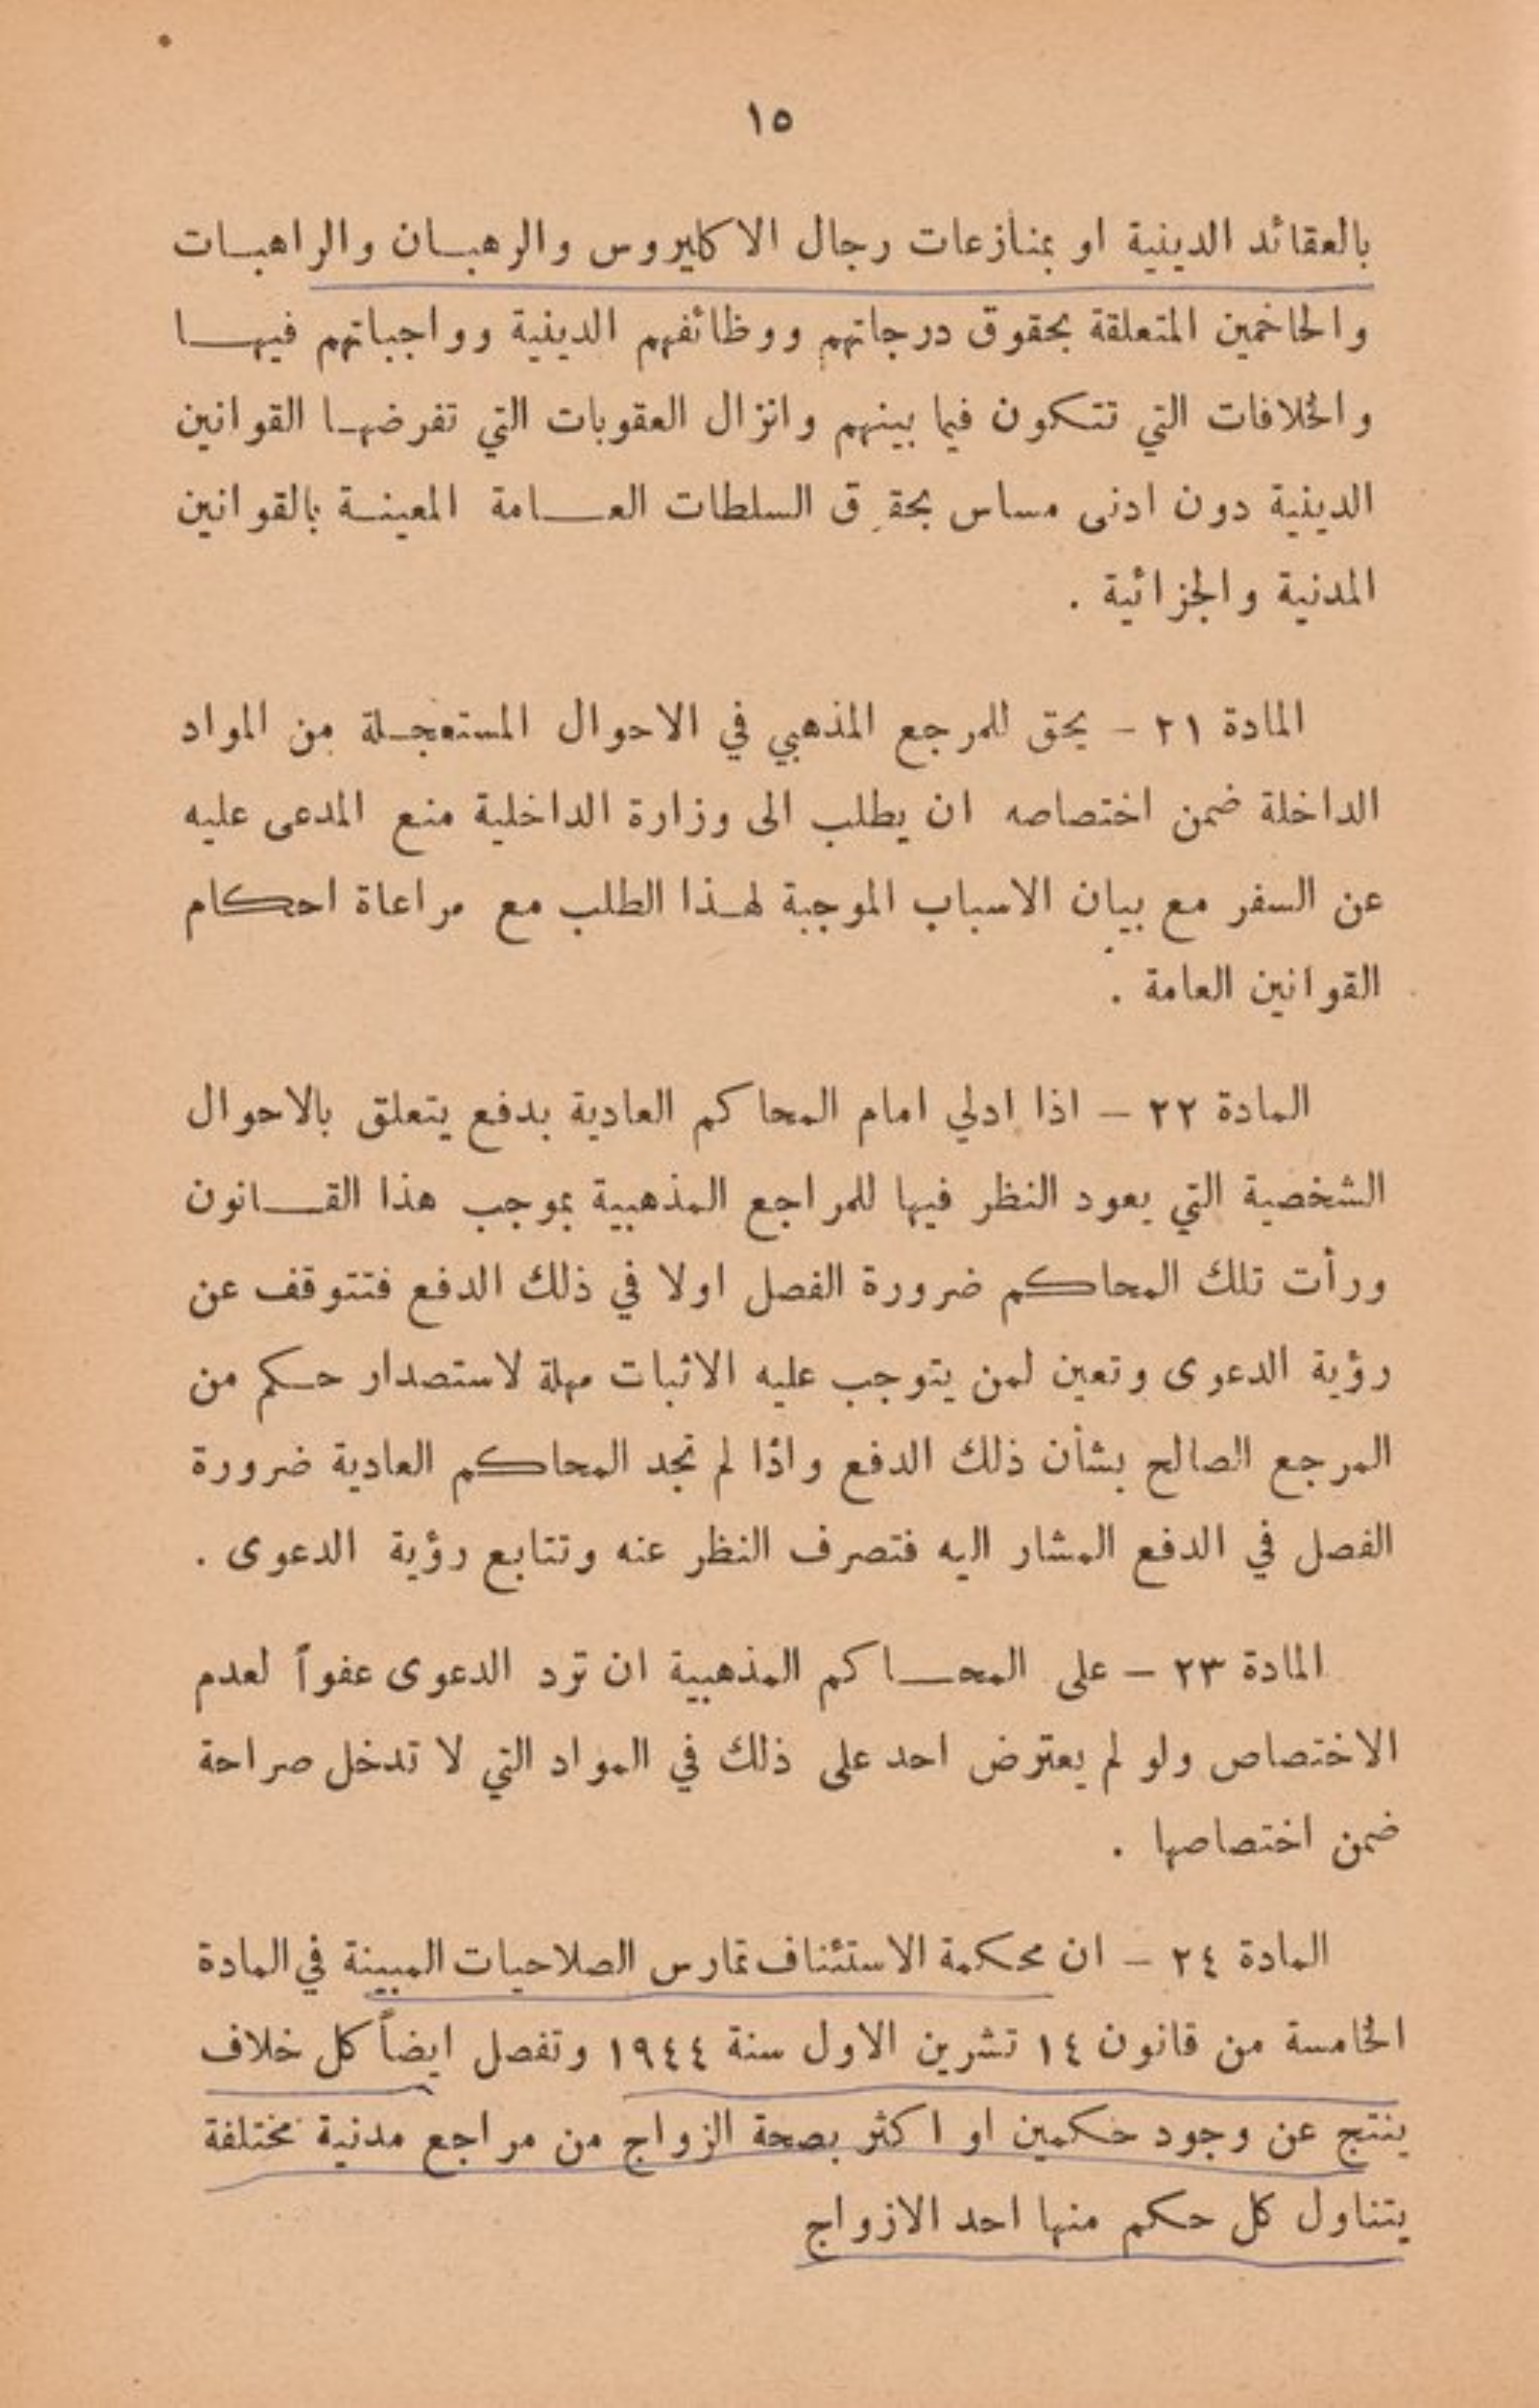 ١٥
بالعقائد الدينية او بمنازعات رجال الاكليروس والرهبان والراهبات
والحاخمين المتعلقة بحقوق درجاتهم ووظائفهم الدينية وواجباتهم فيها
والخلافات التي تتكون فيما بينهم وانزال العقوبات التي تفرضها القوانين
الدينية دون ادنى مساس بحقوق السلطات العامة المعينة بالقوانين
المدنية والجزائية .
المادة ٢١ - يحق للمرجع المذهبي في الاحوال المستعجلة من المواد
الداخلة ضمن اختصاصه ان يطلب الى وزارة الداخلية منع المدعى عليه
عن السفر مع بيان الاسباب الموجبة لهذا الطلب مع مراعاة احكام
القوانين العامة .
المادة ٢٢ - اذا ادلي امام المحاكم العادية بدفع يتعلق بالاحوال
الشخصية التي يعود النظر فيها للمراجع المذهبية بموجب هذا القانون
ورأت تلك المحاكم ضرورة الفصل اولا في ذلك الدفع فتتوقف عن
رؤية الدعوى وتعين لمن يتوجب عليه الاثبات مهلة لاستصدار حكم من
المرجع الصالح بشأن ذلك الدفع واذا لم تجد المحاكم العادية ضرورة
الفصل في الدفع المشار اليه فتصرف النظر عنه وتتابع رؤية الدعوى .
المادة ٢٣ - على المحاكم المذهبية ان ترد الدعوى عفواً لعدم
الاختصاص ولو لم يعترض احد على ذلك في المواد التي لا تدخل صراحة
ضمن اختصاصها .
المادة ٢٤ - ان محكمة الاستئناف تمارس الصلاحيات المبينة في المادة
الخامسة من قانون ١٤ تشرين الاول سنة ١٩٤٤ وتفصل ايضاً كل خلاف
ينتج عن وجود حكمين او اكثر بصحة الزواج من مراجع مدنية مختلفة
يتناول كل حكم منها احد الازواج